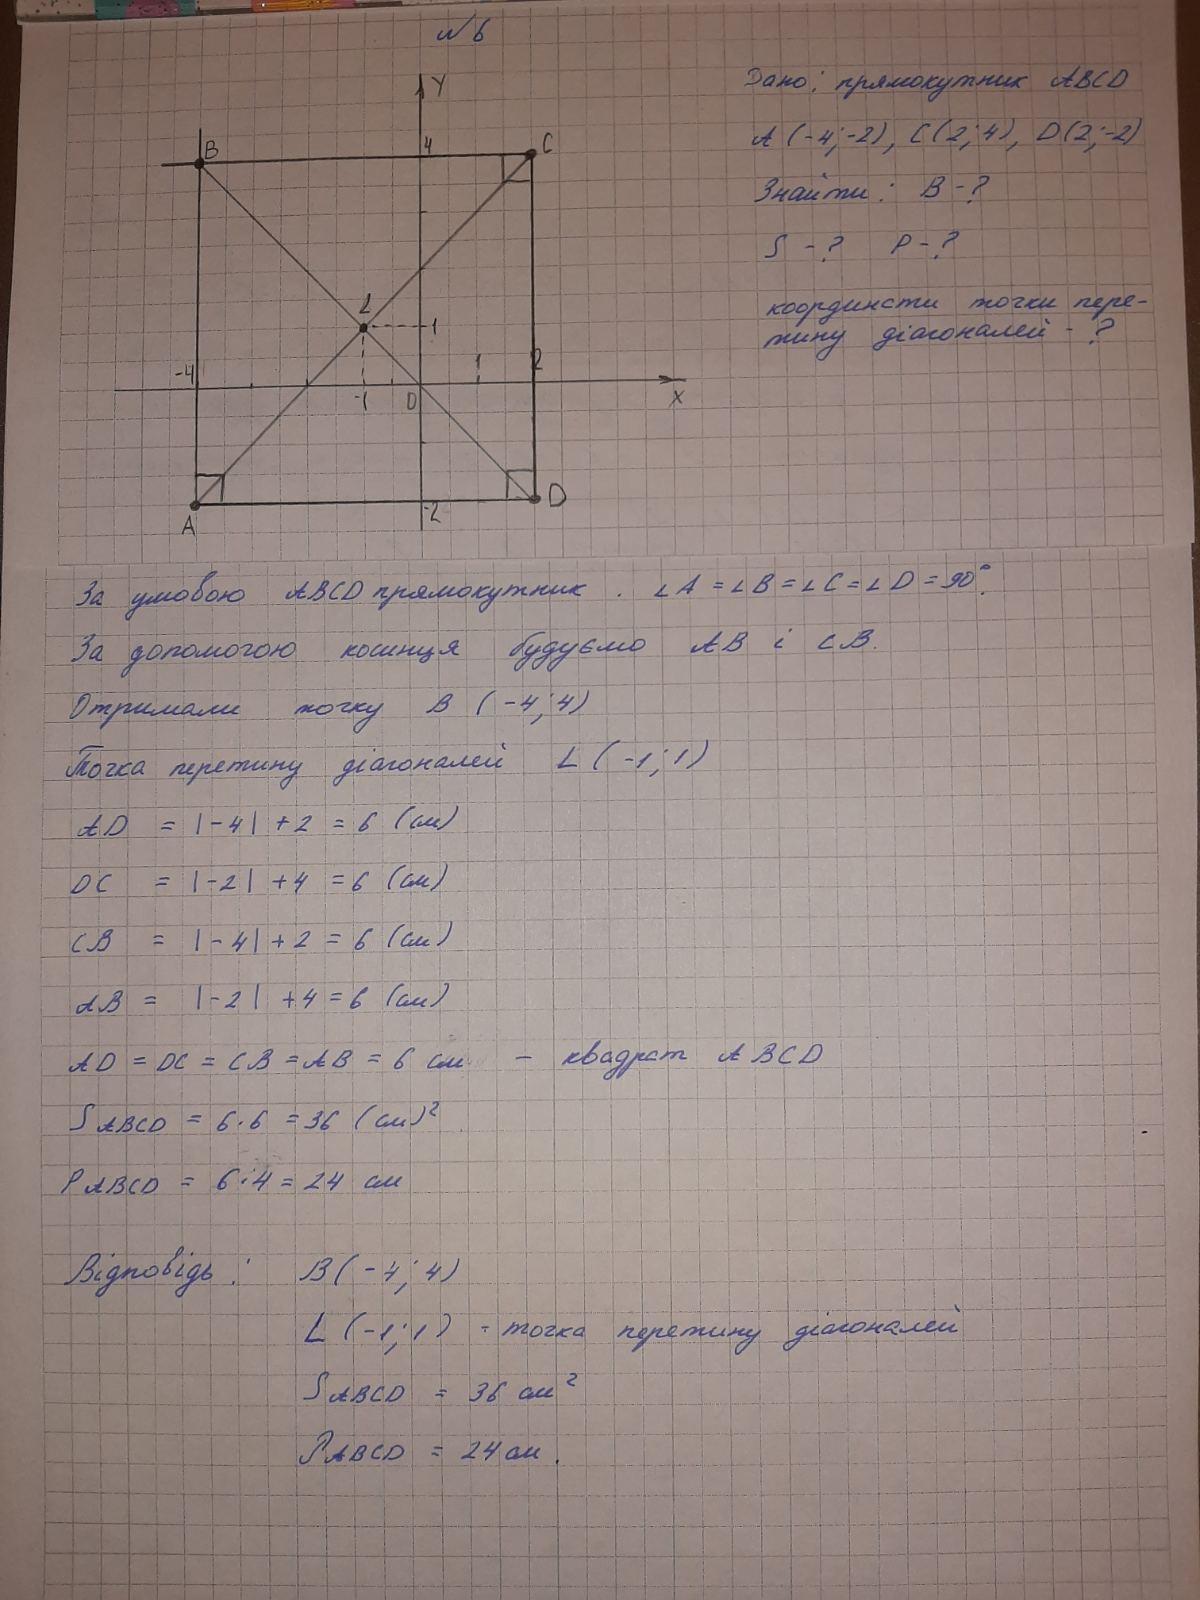 №6
Дано: прямокутник ABCD
A (-4;-2), C(2;4), D(2;-2)
Знайти: B-?
S -? P-?
координати точки пере-
тину діагоналей -?
Y
B
4
C
L
1
-4
1
2
-1
0
X
A
-2
D
За умовою ABCD прямокутник. ∠A=∠B=∠C=∠D=90°.
За допомогою косинця будуємо AB і CB.
Отримали точку B (-4;4)
Точка перетину діагоналей L (-1;1)
AD = |-4|+2 = 6 (см)
DC = |-2|+4 = 6 (см)
CB = |-4|+2 = 6 (см)
AB = |-2|+4 = 6 (см)
AD = DC = CB = AB = 6 см - квадрат ABCD
S ABCD = 6·6 = 36 (см)²
P ABCD = 6·4 = 24 см
Відповідь: B(-4;4)
L (-1;1) - точка перетину діагоналей
S ABCD = 36 см²
P ABCD = 24 см.